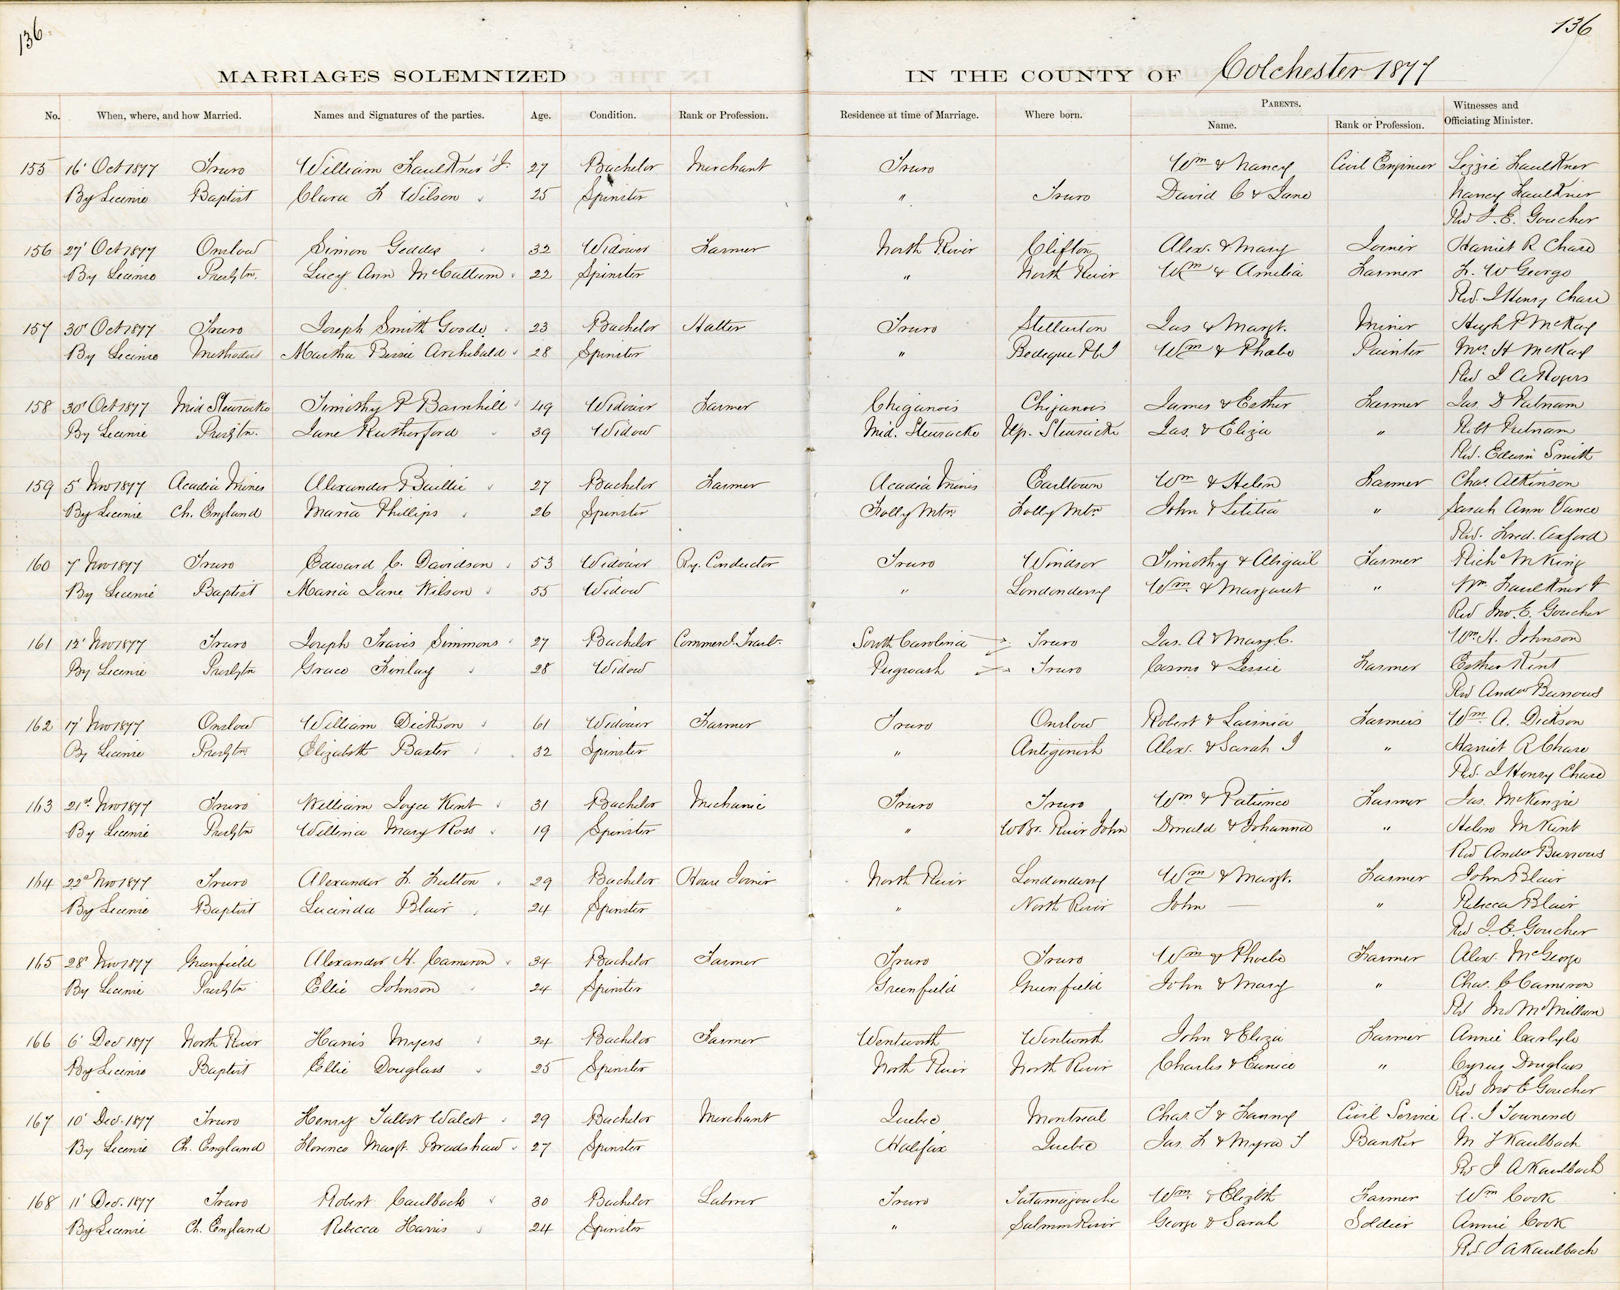 136
136
MARRIAGES SOLEMNIZED IN THE COUNTY OF Colchester 1877
No. When, where, and how Married. Names and Signatures of the parties. Age. Condition. Rank or Profession. Residence at time of Marriage. Where born. PARENTS. Name. Rank or Profession. Witnesses and Officiating Minister.
155 16' Oct 1877 Truro William Faulkner Jr. 27 Bachelor Merchant Truro Wm & Nancy Civil Engineer Lizzie Faulkner
By Licence Baptist Clara F Wilson 25 Spinster " Truro David C & Jane Nancy Faulkner
Rev J. E. Goucher
156 27' Oct 1877 Onslow Simon Geddes 32 Widower Farmer North River Clifton Alex. & Mary Joiner Harriet R Chase
By Licence Presbytn. Lucy Ann McCallum 22 Spinster " North River Wm & Amelia Farmer F. W George
Rev J Henry Chase
157 30' Oct 1877 Truro Joseph Smith Goode 23 Bachelor Hatter Truro Stellarton Jas & Margt. Miner Hugh P McKay
By Licence Methodist Martha Bessie Archibald 28 Spinster " Bedeque PEI Wm & Phebe Painter Mrs H McKay
Rev J A Rogers
158 30' Oct 1877 Mid Stewiacke Timothy P Barnhill 49 Widower Farmer Chiganois Chiganois James & Esther Farmer Jas. D Putnam
By Licence Presbytn. Jane Rutherford 39 Widow Mid. Stewiacke Up. Stewiacke Jas. & Eliza " Robt Putnam
Rev. Edwin Smith
159 5' Nov 1877 Acadia Mines Alexander Baillie 27 Bachelor Farmer Acadia Mines Earltown Wm & Helen Farmer Chas. Atkinson
By Licence Ch. England Maria Phillips 26 Spinster Folly Mtn Folly Mtn John & Letitia " Sarah Ann Vance
Rev. Fred. Axford
160 7' Nov 1877 Truro Edward C. Davidson 53 Widower Ry. Conductor Truro Windsor Timothy & Abigail Farmer Richd McKing
By Licence Baptist Maria Jane Wilson 55 Widow " Londonderry Wm. & Margaret " Wm Faulkner
Rev Jno. E. Goucher
161 12' Nov 1877 Truro Joseph Travis Simmons 27 Bachelor Commercl. Travlr. South Carolina Truro Jas. A & Mary C. Wm. H. Johnson
By Licence Presbytn Grace Finlay 28 Widow Pugwash Truro & Jessie Farmer Esther Kent
Rev Andw Burrows
162 17' Nov 1877 Onslow William Dickson 61 Widower Farmer Truro Onslow Robert & Lavinia Farmers Wm. A. Dickson
By Licence Presbytn Elizabeth Baxter 32 Spinster " Antigonish Alex. & Sarah J " Harriet R Chase
Rev. J Henry Chase
163 21st Nov 1877 Truro William Joyce Kent 31 Bachelor Mechanic Truro Truro Wm & Patience Farmer Jas. McKenzie
By Licence Presbytn Willina Mary Ross 19 Spinster " W Br. River John Donald & Johanna " Helen M Kent
Rev Andw Burrows
164 22d Nov 1877 Truro Alexander F. Fulton 29 Bachelor House Joiner North River Londonderry Wm & Margt. Farmer John Blair
By Licence Baptist Lucinda Blair 24 Spinster " North River John — " Rebecca Blair
Rev J. E. Goucher
165 28' Nov 1877 Greenfield Alexander H. Cameron 34 Bachelor Farmer Truro Truro Wm & Phoebe Farmer Alex. McGeorge
By Licence Presbytn Ellie Johnson 24 Spinster Greenfield Greenfield John & Mary " Chas. C Cameron
Rev Jno McMillan
166 6' Dec 1877 North River Harris Myers 24 Bachelor Farmer Wentworth Wentworth John & Eliza Farmer Annie Carlyle
By Licence Baptist Ellie Douglass 25 Spinster North River North River Charles & Eunice " Cyrus Douglass
Rev Jno E Goucher
167 10' Dec. 1877 Truro Henry Talbot Walcot 29 Bachelor Merchant Quebec Montreal Chas T & Fanny Civil Service A. J Townend
By Licence Ch. England Florence Margt. Bradshaw 27 Spinster Halifax Quebec Jas. F. & Myra T Banker M F Kaulbach
Rev J A Kaulbach
168 11' Dec. 1877 Truro Robert Caulback 30 Bachelor Laborer Truro Tatamagouche Wm. & Elizbth Farmer Wm Cook
By Licence Ch. England Rebecca Harris 24 Spinster " Salmon River George & Sarah Soldier Annie Cook
Rev J A Kaulbach